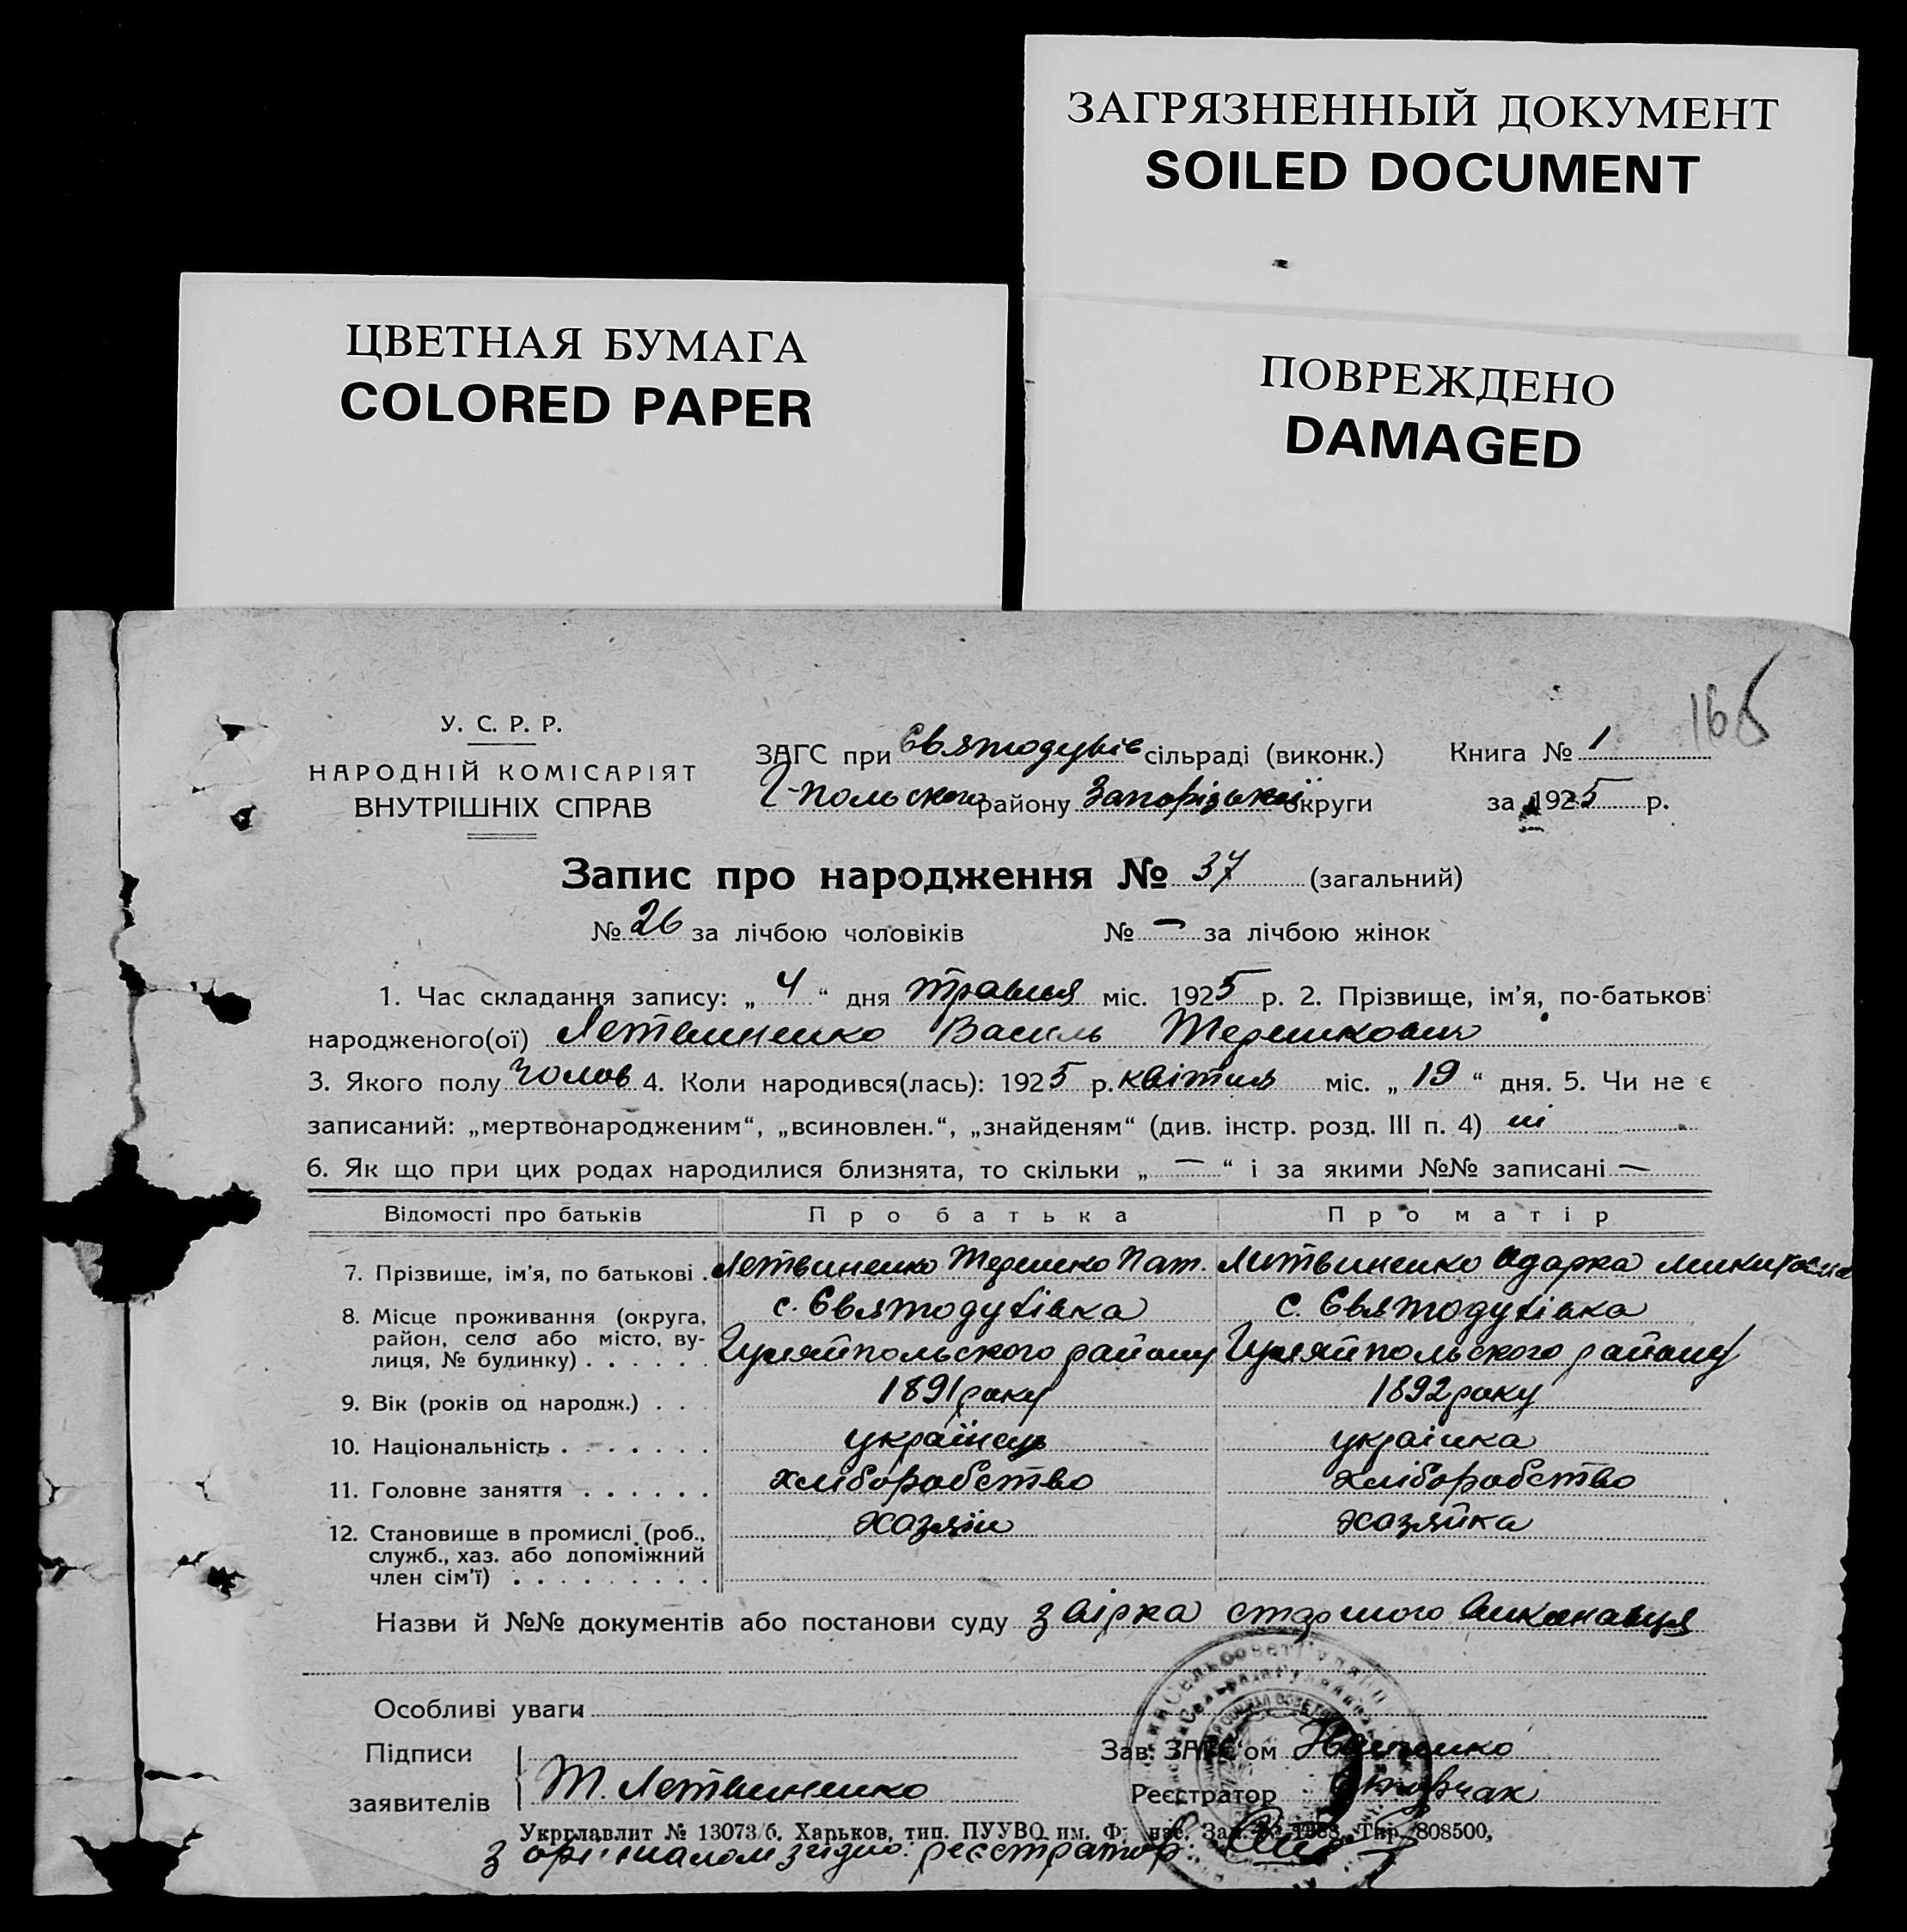 ЗАГРЯЗНЕННЫЙ ДОКУМЕНТ
SOILED DOCUMENT
ЦВЕТНАЯ БУМАГА
COLORED PAPER
ПОВРЕЖДЕНО
DAMAGED
165
У. С. Р. Р.
НАРОДНІЙ КОМІСАРІЯТ
ВНУТРІШНІХ СПРАВ
ЗАГС при Святодухів сільраді (виконк.) Книга № 1
Г-Польського району Запорізької округи за 1925 р.
Запис про народження № 37 (загальний)
№ 26 за лічбою чоловіків № — за лічбою жінок
1. Час складання запису: „ 4 “ дня травня міс. 1925 р. 2. Прізвище, ім'я, по-батькові
народженого(ої) Летвиненко Василь Терешкович
3. Якого полу чолов 4. Коли народився(лась): 1925 р. квітня міс. „ 19 “ дня. 5. Чи не є
записаний: „мертвонародженим“, „всиновлен.“, „знайденям“ (див. інстр. розд. III п. 4) ні
6. Як що при цих родах народилися близнята, то скільки „ — “ і за якими №№ записані —
Відомості про батьків Про батька Про матір
7. Прізвище, ім'я, по батькові . Летвиненко Терешко Пат. Литвиненко Одарка Микитовна
8. Місце проживання (округа, с. Святодухівка с. Святодухівка
район, село або місто, ву-
лиця, № будинку) . . . . . . Гуляйпольського району Гуляйпольського району
9. Вік (років од народж.) . . . 1891 року 1892 року
10. Національність . . . . . . . українець українка
11. Головне заняття . . . . . . хліборобство хліборобство
12. Становище в промислі (роб., хазяін хазяйка
служб., хаз. або допоміжний
член сім'ї) . . . . . . . . .
Назви й №№ документів або постанови суду звірка старшого виконавця
Особливі уваги
Підписи
заявителів Т. Летвиненко
Зав. ЗАГС'ом
Реєстратор
Укрглавлит № 13073/б. Харьков, тип. ПУУВО им. Ф. Тир. 808500,
з оригіналом згідно: реєстратор: